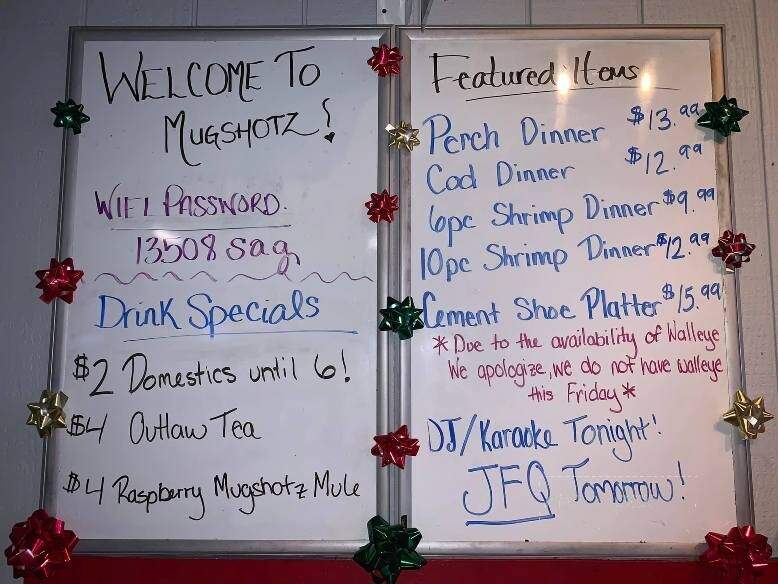 WELCOME TO
MUGSHOTZ!
WIFI PASSWORD.
13508 sag
Drink Specials
$2 Domestics until 6!
$4 Outlaw Tea
$4 Raspberry Mugshotz Mule
Featured Items
Perch Dinner $13.99
Cod Dinner $12.99
6pc Shrimp Dinner $9.99
10pc Shrimp Dinner $12.99
Cement Shoe Platter $15.99
* Due to the availability of Walleye
We apologize, we do not have walleye
this Friday *
DJ/Karaoke Tonight!
JFQ Tomorrow!